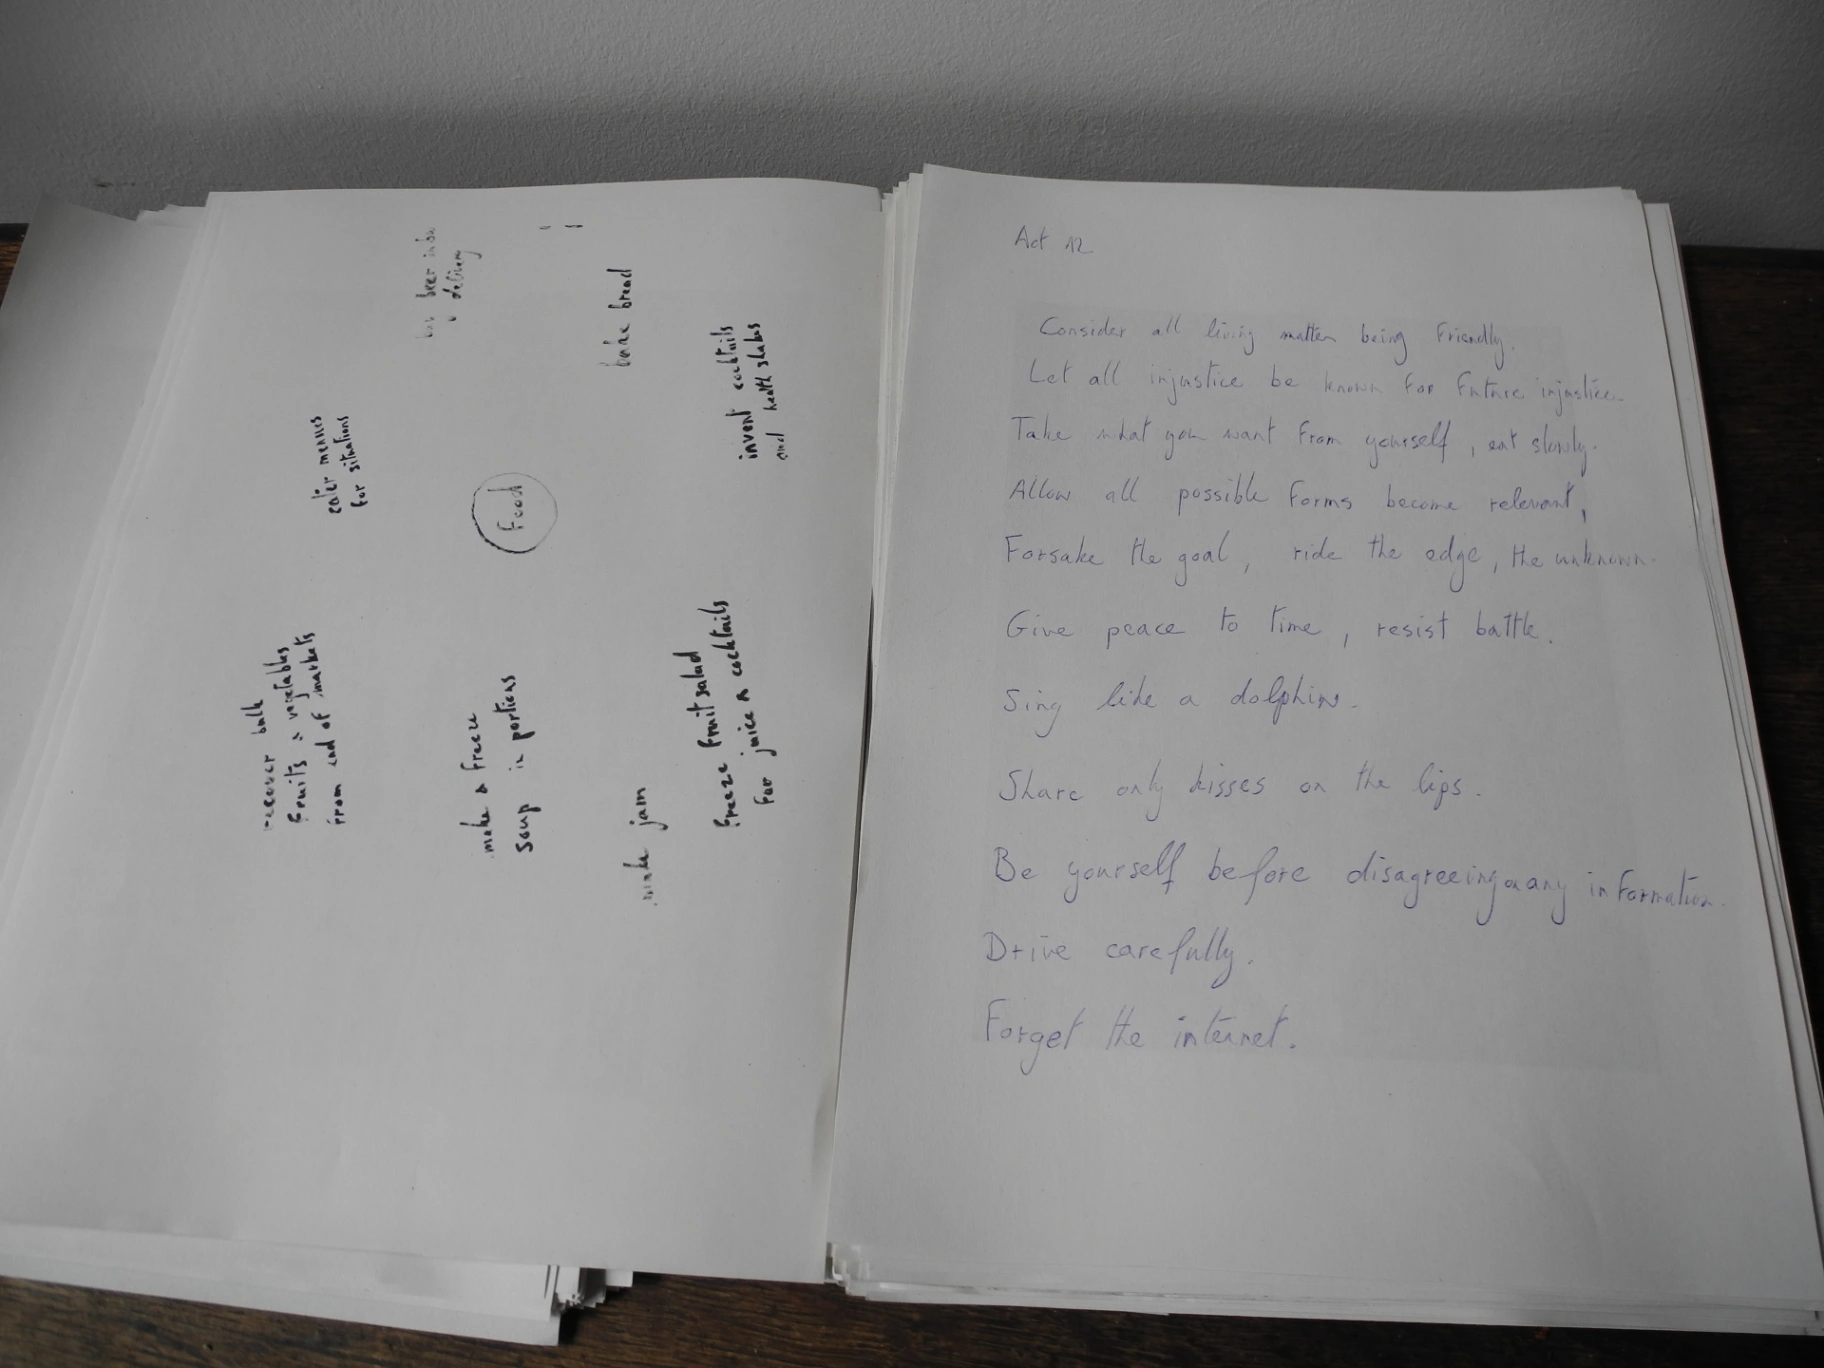 beer
delivery
bake bread
invent cocktails
and health shakes
cater menues
for situations
Food
recover bulk
fruits & vegetables
from end of markets
make & freeze
soup in portions
make jam
freeze fruit salad
for juice & cocktails
Act 12
Consider all living matter being friendly.
Let all injustice be known for future injustice.
Take what you want from yourself, eat slowly.
Allow all possible forms become relevant,
Forsake the goal, ride the edge, the unknown.
Give peace to time, resist battle.
Sing like a dolphin.
Share only kisses on the lips.
Be yourself before disagreeing on any information.
Drive carefully.
Forget the internet.